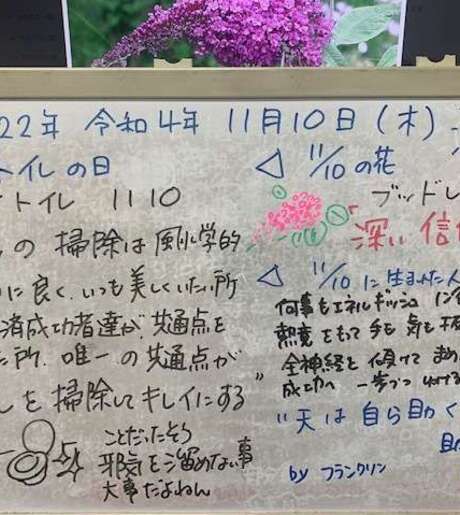 22年 令和4年 11月10日(木)
トイレの日
トイレ 1110
の 掃除は 風水学的
に良く、いつも美しくいたい所
済成功者達が、共通点を
た所、唯一の共通点が
レを掃除してキレイにする"
ことだったそう
邪気を溜めない事
大事だよねん
◁ 11/10の花
ブッドレ
深い 信
◁ 11/10に生まれた人
何事もエネルギッシュに
熱意をもって手も気も
全神経を傾けて
成功へ 一歩づつ
"天は自ら助く
by フランクリン